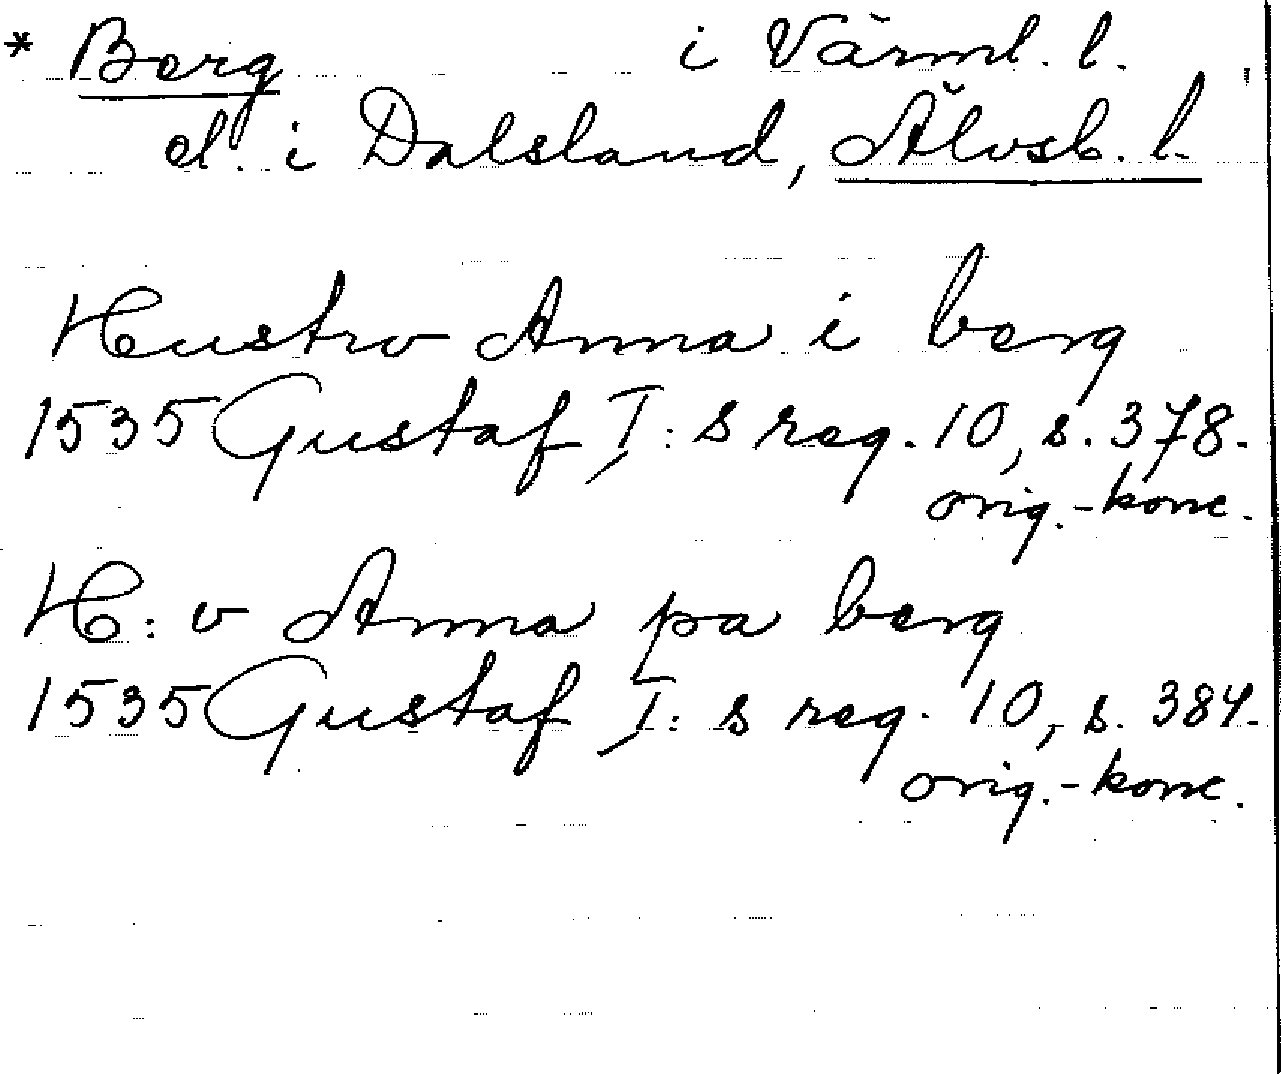 * Berg i Värml. l.
el. i Dalsland, Älvsb. l.
Hustrv Anna i berg
1535 Gustaf I:s reg. 10, s. 378.
orig.-konc.
H:v Anna pa berg
1535 Gustaf I:s reg. 10, s. 384.
orig.-konc.